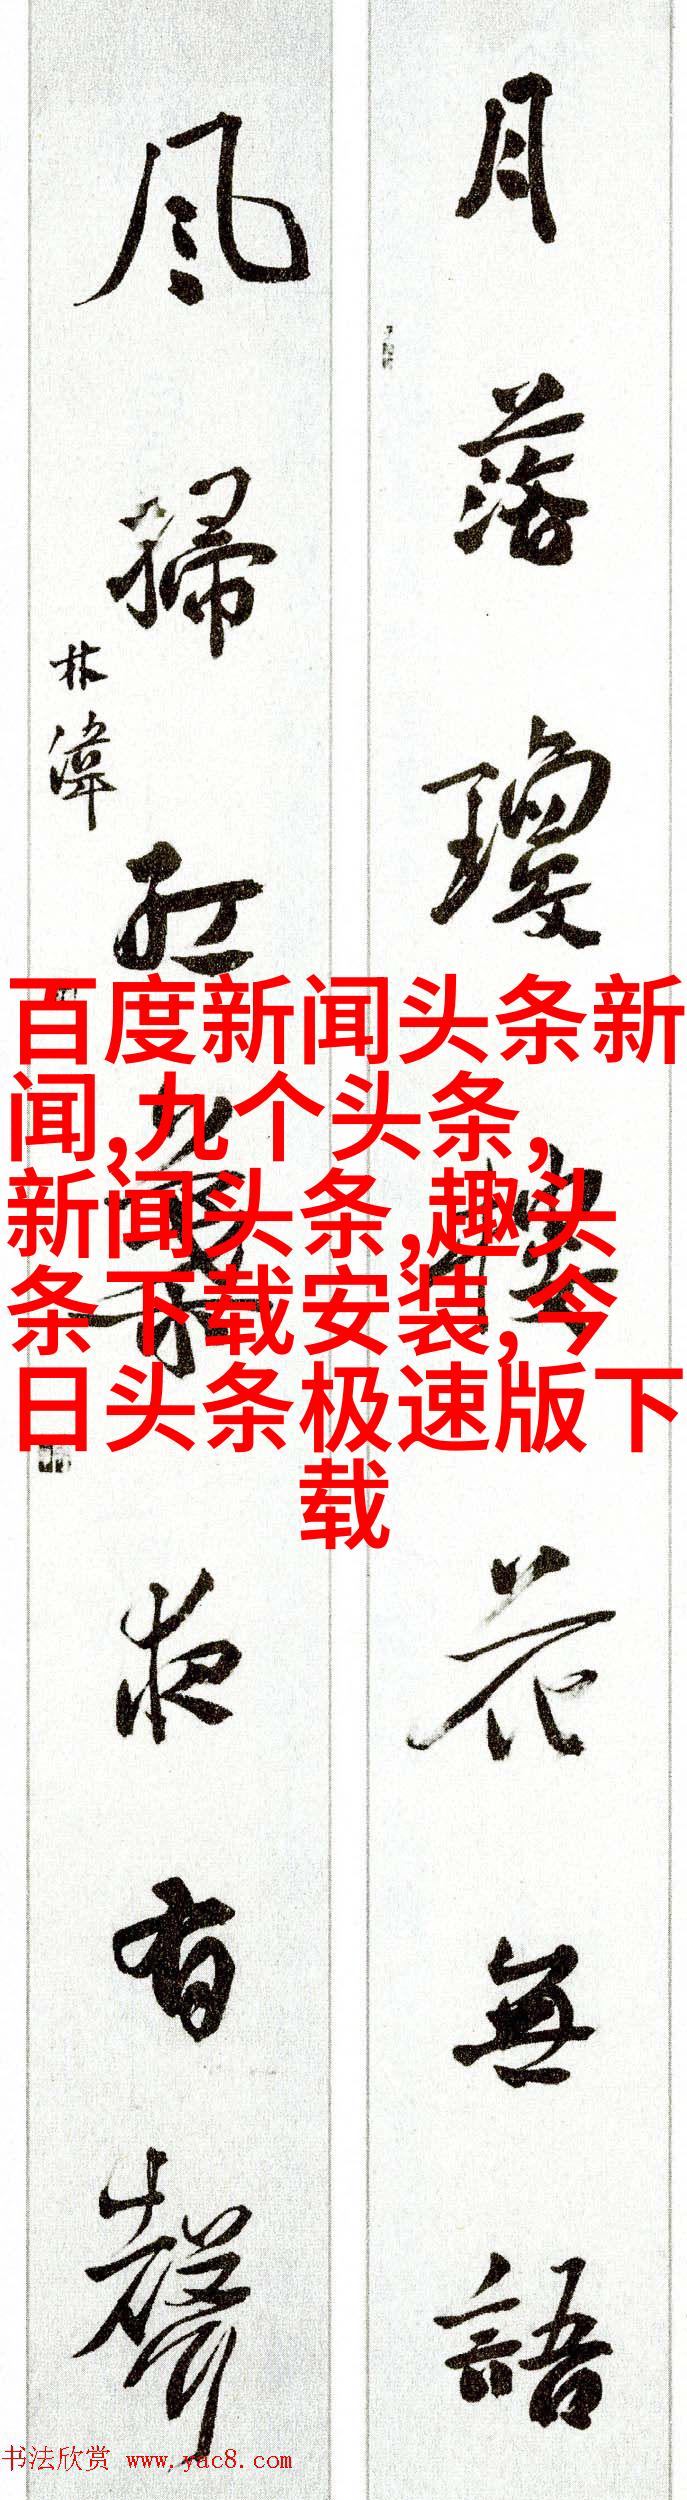 月落瓊花無語
風掃紅叢夜有聲
林
百度新闻头条新
闻,九个头条,
新闻头条,趣头
条下载安装,今
日头条极速版下
载
书法欣赏 www.yac8.com